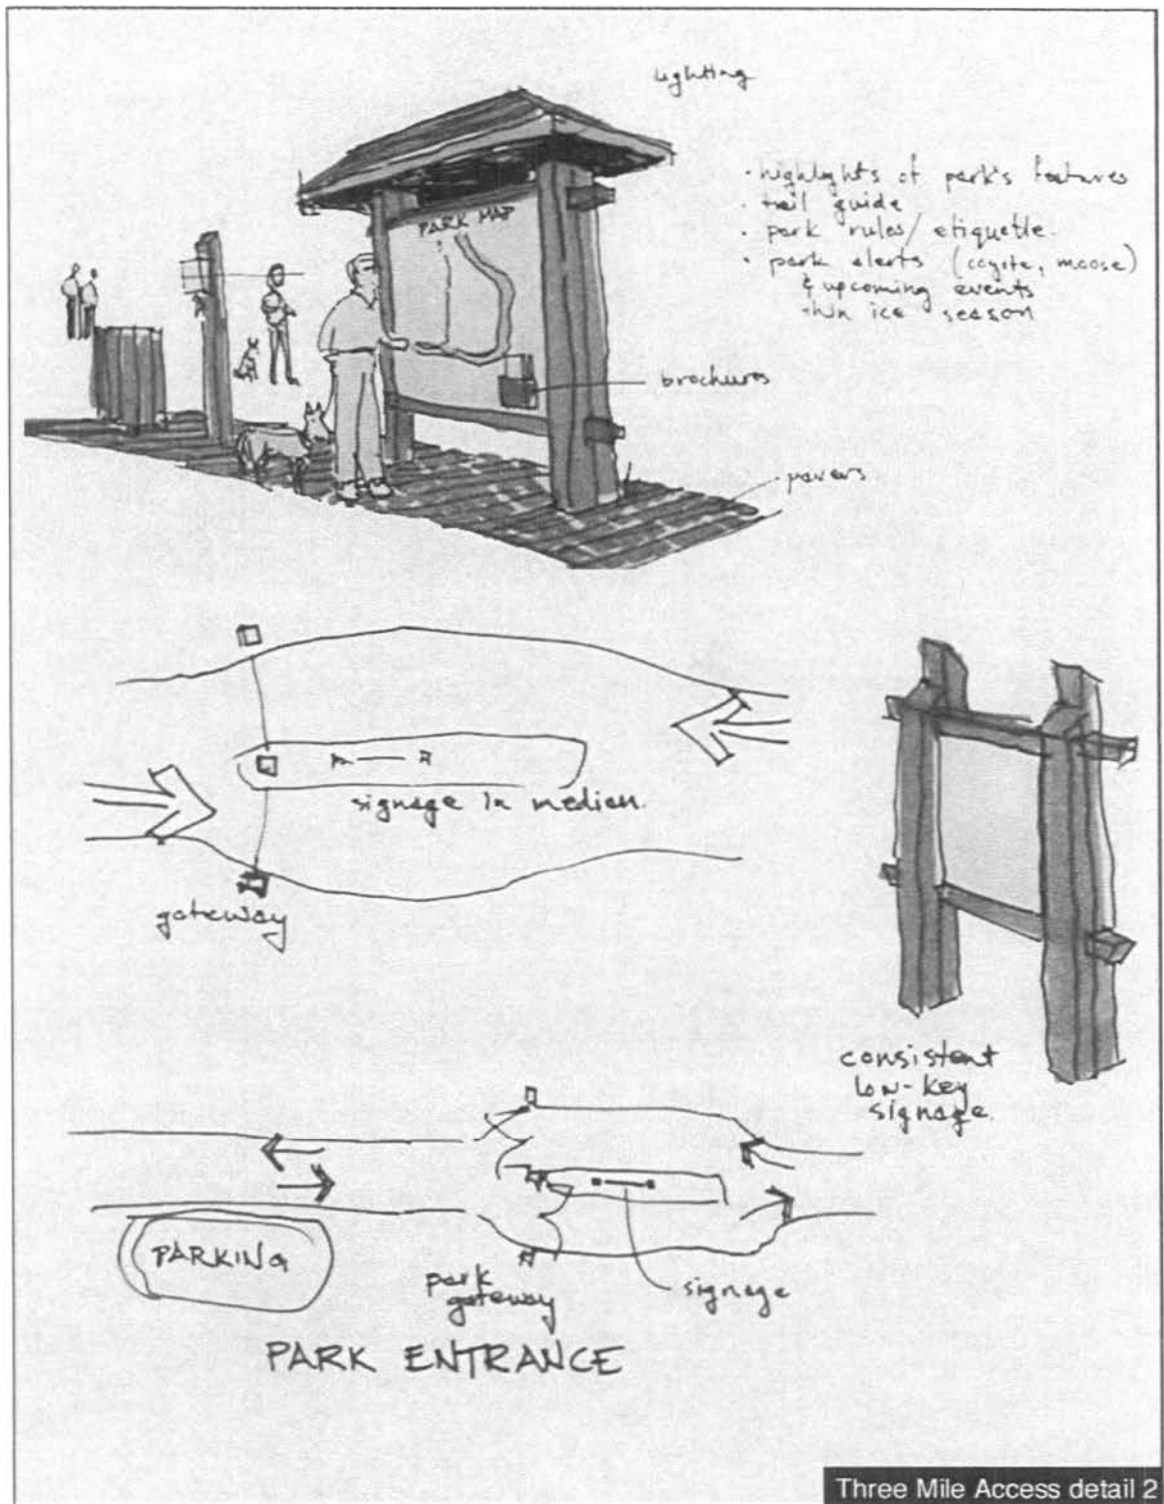 lighting
• highlights of park's features
• trail guide
• park rules/etiquette.
• park alerts (coyote, moose)
& upcoming events
thin ice season
PARK MAP
brochures
pavers
signage in median.
gateway
consistent
low-key
signage.
PARKING
park
gateway
signage
PARK ENTRANCE
Three Mile Access detail 2